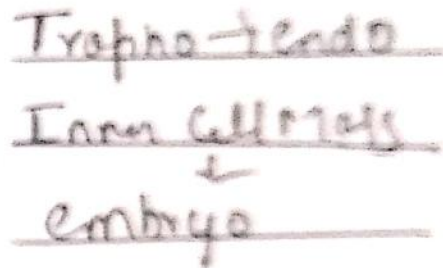 Tropho → endo
Inner Cell Mass
↓
embryo